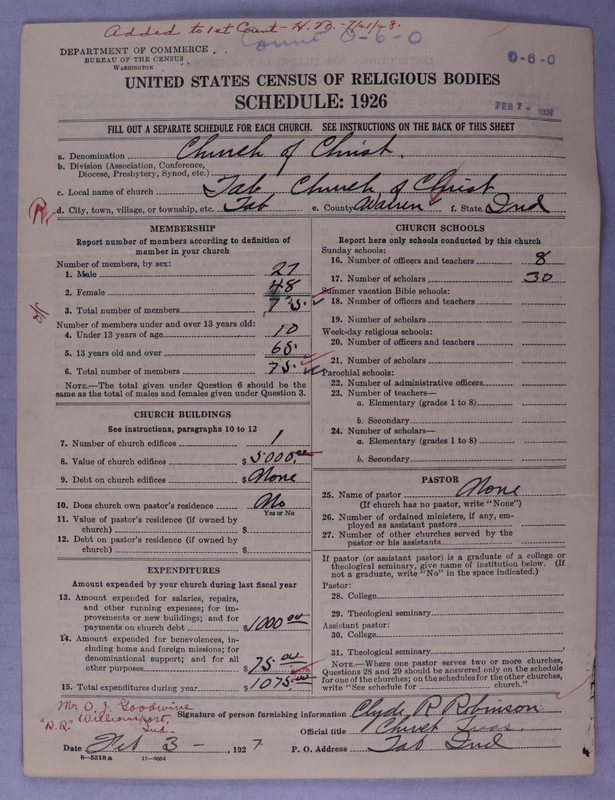 Added to 1st Count - H.B. - 7/21/28.
Count 0-6-0
0-6-0
DEPARTMENT OF COMMERCE
BUREAU OF THE CENSUS
WASHINGTON
UNITED STATES CENSUS OF RELIGIOUS BODIES
SCHEDULE: 1926
FEB 7 - 1927
FILL OUT A SEPARATE SCHEDULE FOR EACH CHURCH. SEE INSTRUCTIONS ON THE BACK OF THIS SHEET
a. Denomination Church of Christ.
b. Division (Association, Conference,
Diocese, Presbytery, Synod, etc.)
c. Local name of church Tab Church of Christ
d. City, town, village, or township, etc. Tab e. County Warren f. State Ind
MEMBERSHIP
Report number of members according to definition of
member in your church
Number of members, by sex:
1. Male 27
2. Female 48
3. Total number of members 75.
Number of members under and over 13 years old:
4. Under 13 years of age 10
5. 13 years old and over 65.
6. Total number of members 75.
NOTE.—The total given under Question 6 should be the
same as the total of males and females given under Question 3.
CHURCH BUILDINGS
See instructions, paragraphs 10 to 12
7. Number of church edifices 1
8. Value of church edifices $5000.00
9. Debt on church edifices $None
10. Does church own pastor's residence No
Yes or No
11. Value of pastor's residence (if owned by
church) $
12. Debt on pastor's residence (if owned by
church) $
EXPENDITURES
Amount expended by your church during last fiscal year
13. Amount expended for salaries, repairs,
and other running expenses; for im-
provements or new buildings; and for
payments on church debt $1000 00
14. Amount expended for benevolences, in-
cluding home and foreign missions; for
denominational support; and for all
other purposes 75.00
15. Total expenditures during year $1075.00
CHURCH SCHOOLS
Report here only schools conducted by this church
Sunday schools:
16. Number of officers and teachers 8
17. Number of scholars 30
Summer vacation Bible schools:
18. Number of officers and teachers
19. Number of scholars
Week-day religious schools:
20. Number of officers and teachers
21. Number of scholars
Parochial schools:
22. Number of administrative officers
23. Number of teachers—
a. Elementary (grades 1 to 8)
b. Secondary
24. Number of scholars—
a. Elementary (grades 1 to 8)
b. Secondary
PASTOR
25. Name of pastor None
(If church has no pastor, write "None")
26. Number of ordained ministers, if any, em-
ployed as assistant pastors
27. Number of other churches served by the
pastor or his assistants
If pastor (or assistant pastor) is a graduate of a college or
theological seminary, give name of institution below. (If
not a graduate, write "No" in the space indicated.)
Pastor:
28. College
29. Theological seminary
Assistant pastor:
30. College
31. Theological seminary
NOTE.—Where one pastor serves two or more churches,
Questions 28 and 29 should be answered only on the schedule
for one of the churches; on the schedules for the other churches,
write "See schedule for church."
Mr O. J. Goodwine
"D.R." Williamsport,
Ind.
Signature of person furnishing information Clyde R Robinson
Official title Church Treas
Date Feb 3 -, 1927 P. O. Address Tab Ind
8-5518a 11-9054